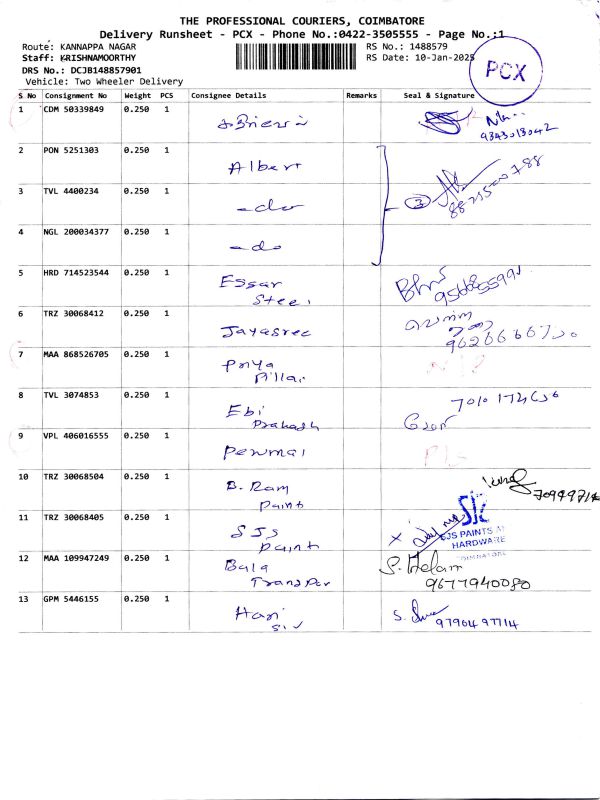 THE PROFESSIONAL COURIERS, COIMBATORE
Delivery Runsheet - PCX - Phone No.:0422-3505555 - Page No.:1
Route: KANNAPPA NAGAR
RS No.: 1488579
Staff: KRISHNAMOORTHY
RS Date: 10-Jan-2025
DRS No.: DCJB148857901
Vehicle: Two Wheeler Delivery
PCX
S No Consignment No Weight PCS Consignee Details Remarks Seal & Signature
1 CDM 50339849 0.250 1
9343013042
2 PON 5251303 0.250 1 Albert
3 TVL 4400234 0.250 1 -do
3
4 NGL 200034377 0.250 1 -do
5 HRD 714523544 0.250 1 Essar
Steel
6 TRZ 30068412 0.250 1 Jayasree
7 MAA 868526705 0.250 1 Priya
Pillai
8 TVL 3074853 0.250 1 Ebi
Prakash
9 VPL 406016555 0.250 1 Perumal
10 TRZ 30068504 0.250 1 B. Ram
Paint
11 TRZ 30068405 0.250 1 SJS
Paint
SJS PAINTS &
HARDWARE
COIMBATORE
12 MAA 109947249 0.250 1 Bala
Transper
9677940080
13 GPM 5446155 0.250 1 Hari
9790497714